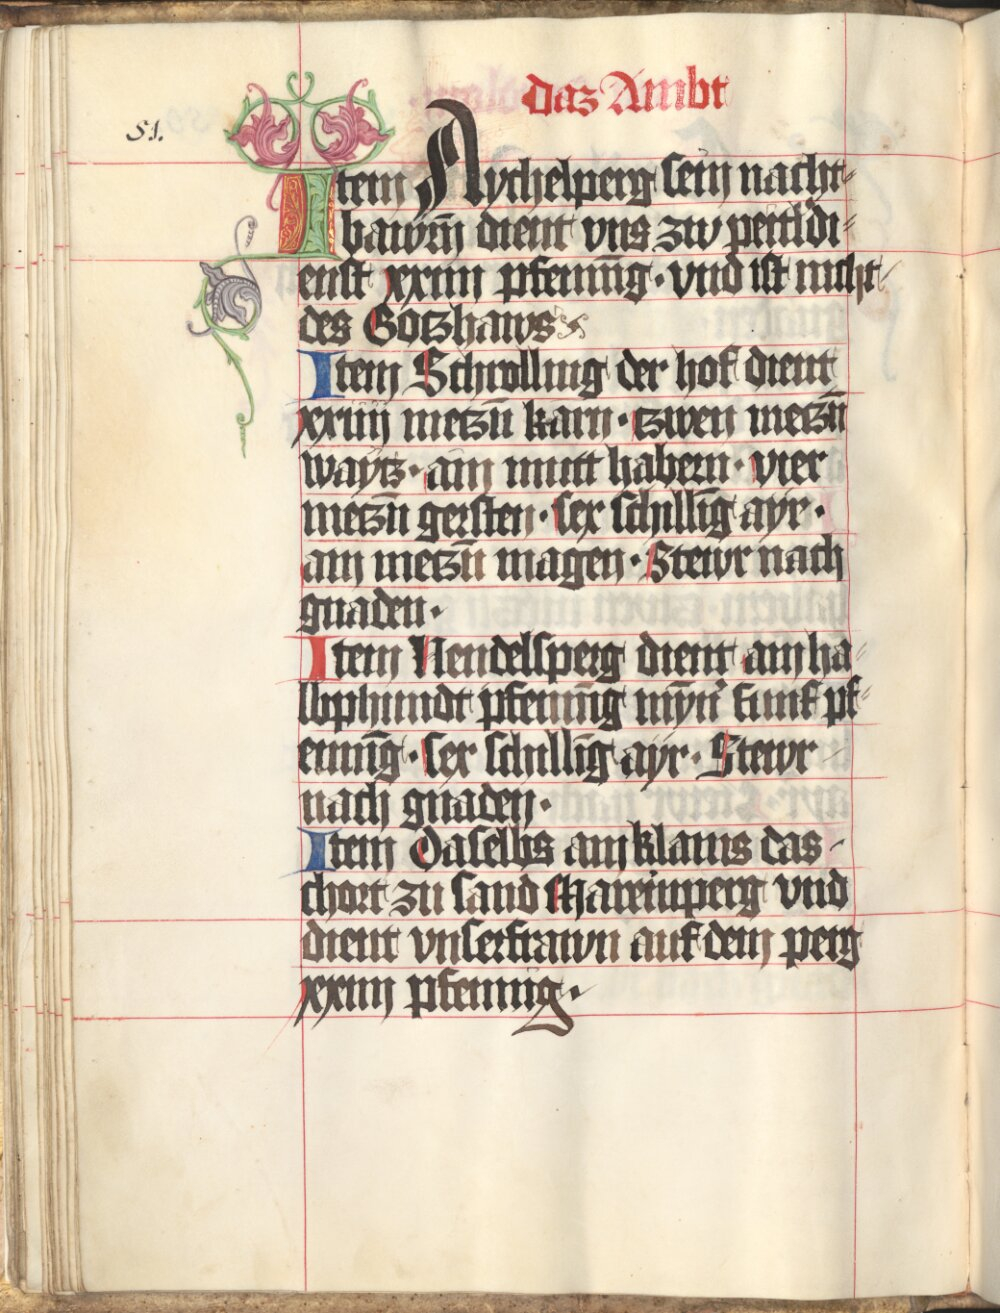 das Ambt
51.
Item Aychelperg sein nacht-
bawrn̄ dient vns zw pertldi-
enst xxiiii pfenni̅g · vnd ist nicht
des Gotzhaws
Item Schrolling der hof dient
xxiiii metzn̄ karn · tzwen metzn̄
wayts · ain mutt habern · vier
metzn̄ gersten · sex schilli̅g ayr ·
ain metzn̄ magen · Stewr nach
gnaden ·
Item Nendelsperg dient ain ha-
lbphundt pfenni̅g myn̄ funf pf-
enni̅g · sex schilli̅g ayr · Stewr
nach gnaden ·
Item Daselbs ain klains das
chort zu sand Mareinperg vnd
dient vnserfrawn auf dem perg
xxiiii pfennig ·